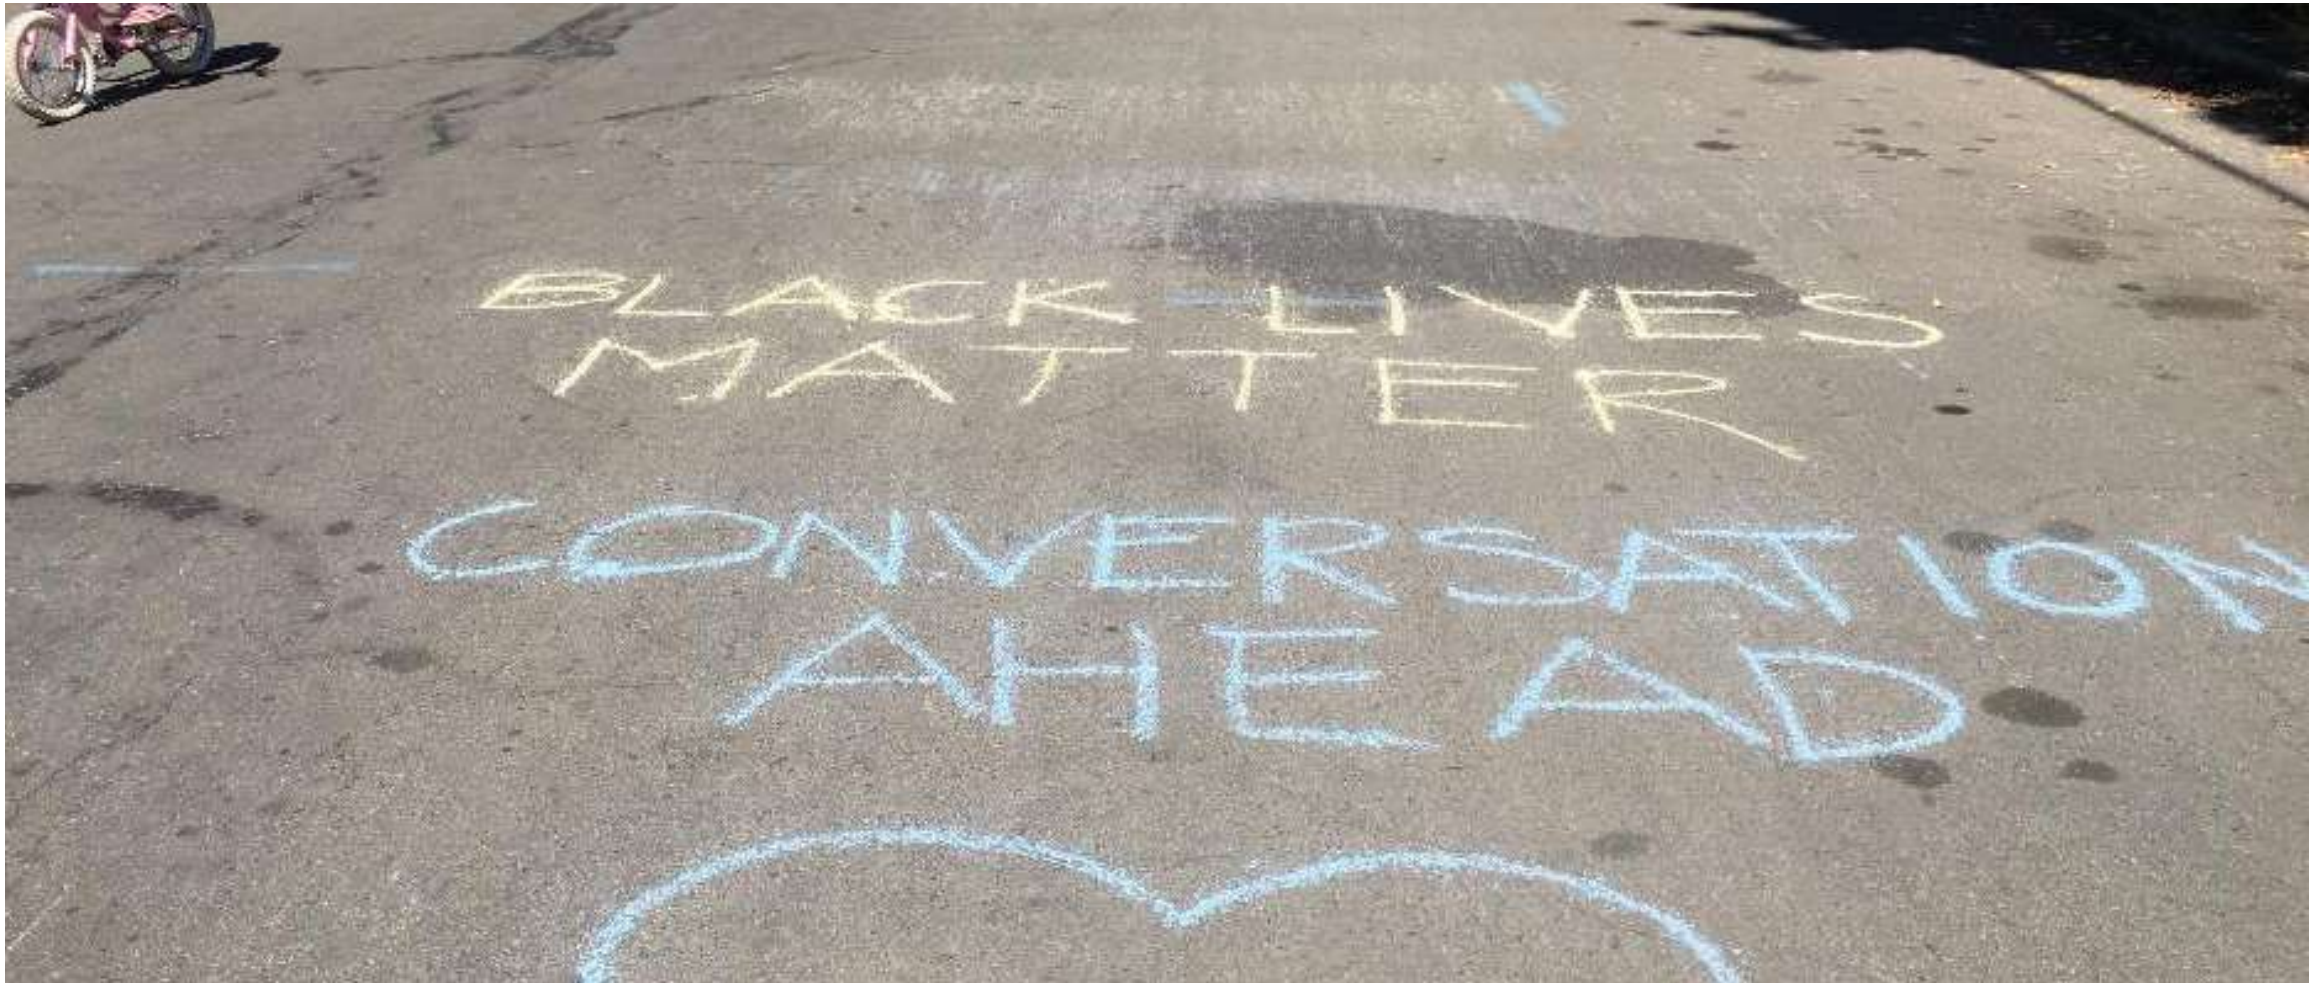 BLACK LIVES
MATTER
CONVERSATION
AHEAD